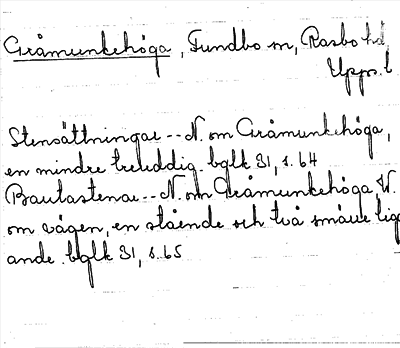 Gråmunkehöga, Fundbo sn, Rasbo hd,
Upps. l.
Stensättningar -- N. om Gråmunkehöga,
en mindre treuddig. bglk 31, s. 64
Bautastenar -- N. om Gråmunkehöga, V.
om vägen, en stående och två smärre ligg
ande. bglk 31, s. 65